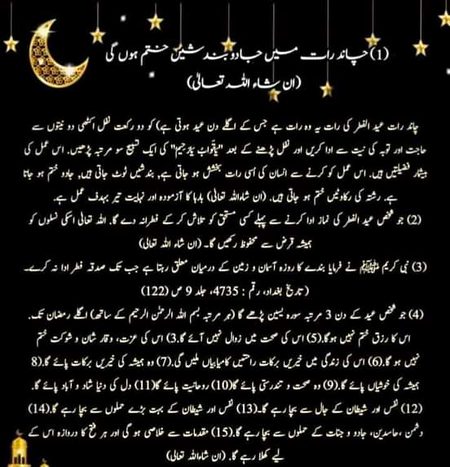 (1) چاند رات میں جادو بندشیں ختم ہوں گی
(ان شاء اللہ تعالیٰ)
چاند رات عید الفطر کی رات یہ وہ رات ہے جس کے اگلے دن عید ہوتی ہے) کو دو رکعت نفل اکٹھی دو نیتوں سے
حاجت اور توبہ کی نیت سے ادا کریں اور نفل پڑھنے کے بعد "یاتواب یارحیم" کی ایک تسبیح سو مرتبہ پڑھیں۔ اس عمل کی
بیشمار فضیلتیں ہیں۔ اس عمل کو کرنے سے انسان کی اُسی رات بخشش ہو جاتی ہے، بندشیں ٹوٹ جاتی ہیں، جادو ختم ہو جاتا
ہے۔ رشتہ کی رکاوٹیں ختم ہو جاتی ہیں۔ (ان شاءاللہ تعالی) بارہا کا آزمودہ اور نہایت تیر بہدف عمل ہے۔
(2) جو شخص عید الفطر کی نماز ادا کرنے سے پہلے کسی مستحق کو تلاش کر کے فطرانہ دے گا۔ اللہ تعالی اسکی نسلوں کو
ہمیشہ قرض سے محفوظ رکھیں گا۔ (ان شاء اللہ تعالی)
(3) نبی کریم ﷺ نے فرمایا بندے کا روزہ آسمان و زمین کے درمیان معلق رہتا ہے جب تک صدقہ فطر ادا نہ کرے۔
(تاریخ بغداد، رقم : 4735، جلد 9 ص 122)
(4) جو شخص عید کے دن 3 مرتبہ سورہ یسین پڑھے گا (ہر مرتبہ بسم اللہ الرحمٰن الرحیم کے ساتھ) اگلے رمضان تک۔
اس کا رزق ختم نہیں ہوگا (5) اس کی صحت میں زوال نہیں آئے گا۔3) اس کی عزت، وقار شان و شوکت ختم
نہیں ہو گا۔(6) اس کی زندگی میں خیریں برکات راحتیں کامیابیاں ملیں گی۔(7) وہ ہمیشہ کی خیریں برکات پائے گا۔8)
ہمیشہ کی خوشیاں پائے گا۔(9) وہ صحت و تندرستی پائے گا(10) روحانیت پائے گا(11) دل کی دنیا شاد و آباد پائے گا۔
(12) نفس اور شیطان کے جال سے بچا رہے گا۔(13) نفس اور شیطان کے بہت بڑے حملوں سے بچا رہے گا۔(14)
دشمن ،حاسدین، جادو و جنات کے حملوں سے بچا رہے گا۔(15) مقدمات سے خلاصی ہو گی اور ہر فتح کا دروازہ اس کے
لیے کھلا رہے گا۔ (ان شاءاللہ تعالی)